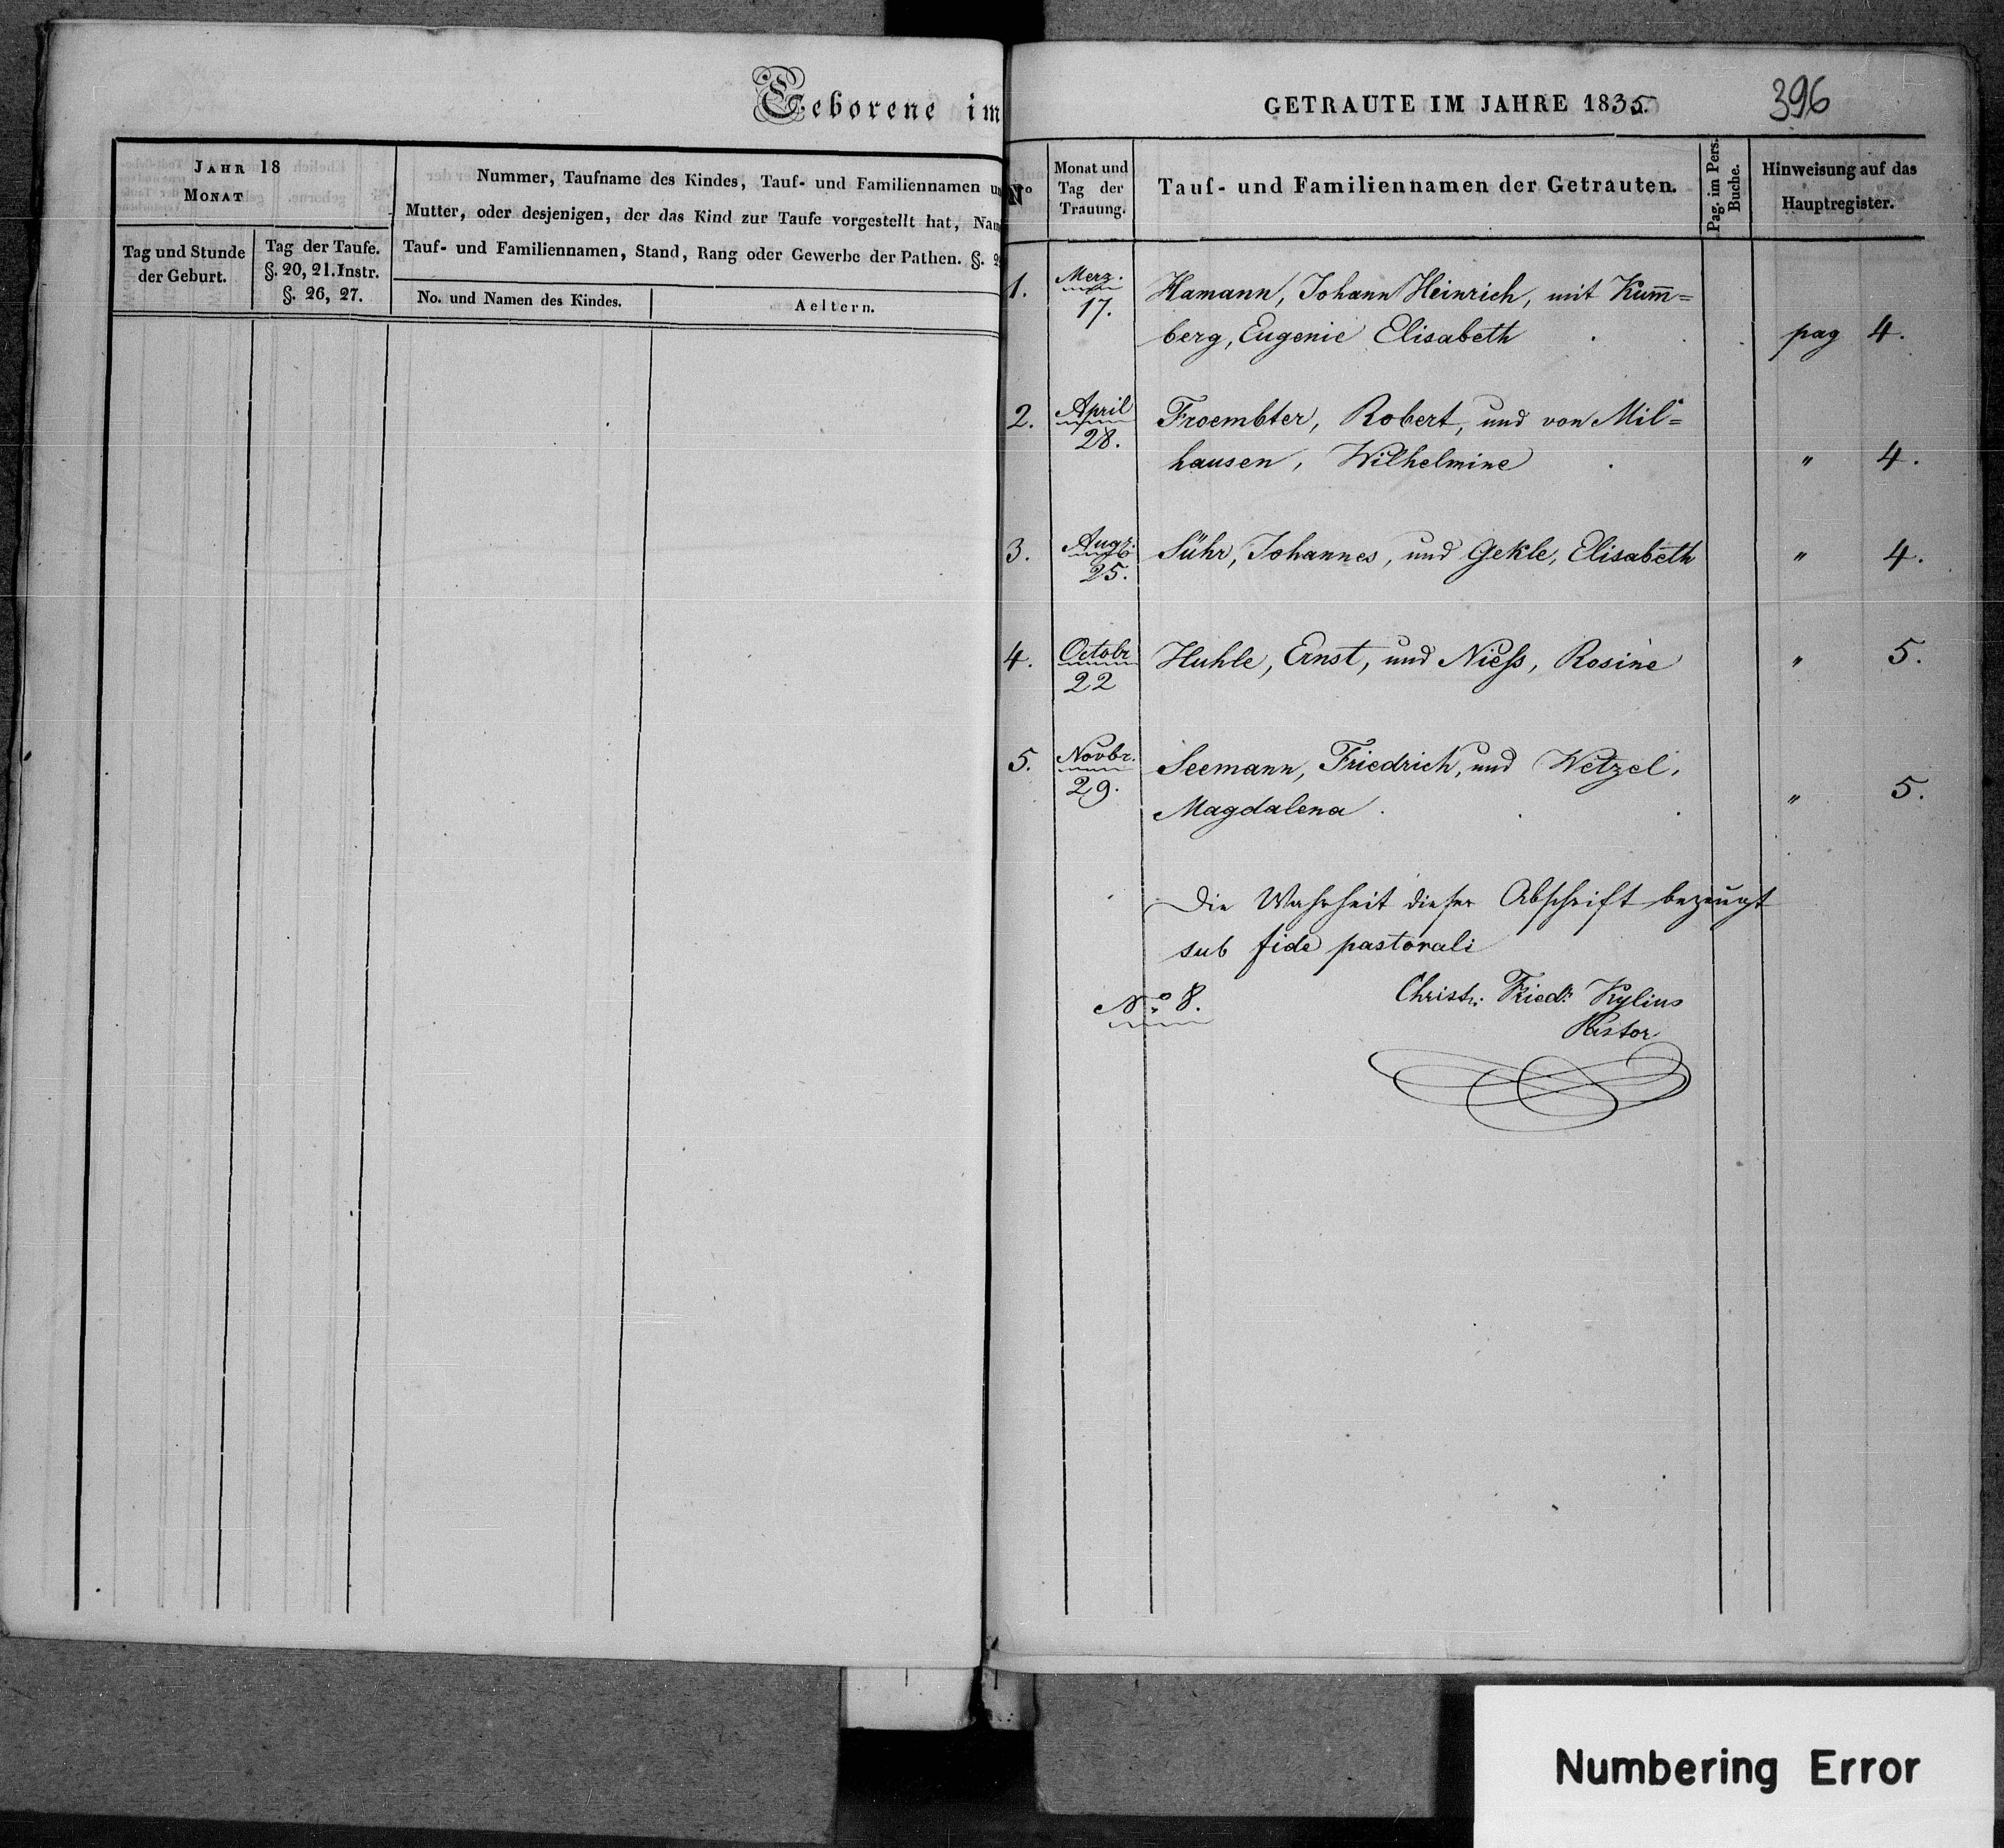 Geborene im
JAHR 18
MONAT
Nummer, Taufname des Kindes, Tauf- und Familiennamen
Mutter, oder desjenigen, der das Kind zur Taufe vorgestellt hat,
Tag und Stunde
der Geburt.
Tag der Taufe.
§. 20, 21. Instr.
§. 26, 27.
Tauf- und Familiennamen, Stand, Rang oder Gewerbe der Pathen. §.
No. und Namen des Kindes.
Aeltern.
GETRAUTE IM JAHRE 1835.
396
No
Monat und
Tag der
Trauung.
Tauf- und Familiennamen der Getrauten.
Pag. im Pers.
Buche.
Hinweisung auf das
Hauptregister.
1. Merz. 17. Hamann, Johann Heinrich, mit Kum̅=
berg, Eugenie Elisabeth pag 4.
2. April 28. Froembter, Robert, und von Mil=
hausen, Wilhelmine " 4.
3. 25. Sühr, Johannes, und Gekle, Elisabeth " 4.
4. Octobr 22 Huhle, Ernst, und Niess, Rosine " 5.
5. Novbr. 29. Seemann, Friedrich, und Wetzel,
Magdalena. " 5.
Die Wahrheit dieser Abschrift bezeugt
sub fide pastorali
No. 8.
Christ. Fried. Kylius
Pastor
Numbering Error